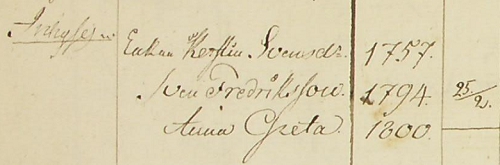 Inhyses
Enkan Kerstin Svensdr. 1757.
Sven Fredriksson. 1794. 25/2.
Anna Greta. 1800.